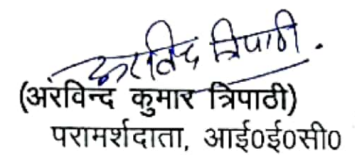 अरविन्द त्रिपाठी .
(अरविन्द कुमार त्रिपाठी)
परामर्शदाता, आई0ई0सी0